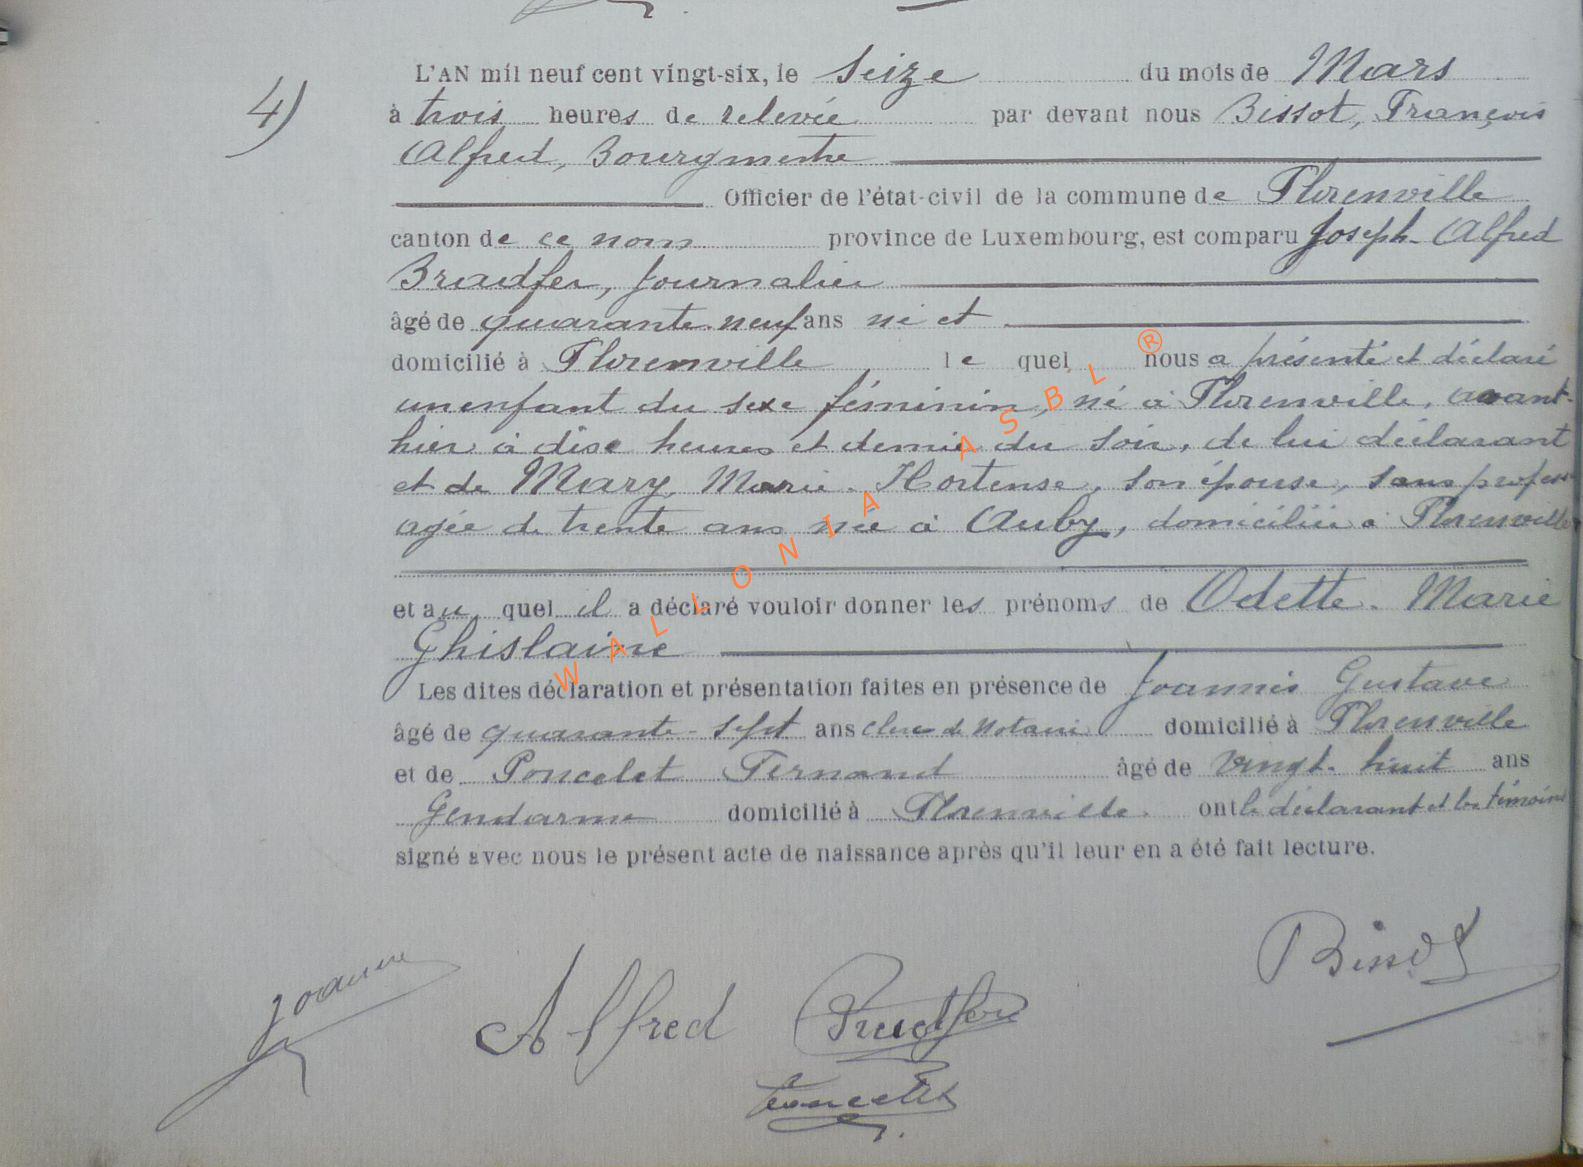 4)
L'AN mil neuf cent vingt-six, le Seize du mois de Mars
à trois heures de relevée par devant nous Bissot, François
Alfred, Bourgmestre
Officier de l'état-civil de la commune de Florenville
canton de ce nom province de Luxembourg, est comparu Joseph Alfred
Braidfer, Journalier
âgé de quarante neuf ans né et
domicilié à Florenville le quel nous a présenté et déclaré
un enfant du sexe féminin, né à Florenville, avant-
hier à dise heures et demie du soir, de lui déclarant
et de Mary, Marie Hortense, son épouse, sans profession
agée de trente ans née à Auby, domiciliée à Florenville
et au quel il a déclaré vouloir donner les prénoms de Odette. Marie
Ghislaine
Les dites déclaration et présentation faites en présence de Joannès Gustave
âgé de quarante-sept ans clerc de Notaire domicilié à Florenville
et de Poncelet Fernand âgé de vingt-huit ans
Gendarme domicilié à Florenville. ont le déclarant et les témoins
signé avec nous le présent acte de naissance après qu'il leur en a été fait lecture.
Bissot
Alfred
Poncelet
WALLONIA ASBL ®